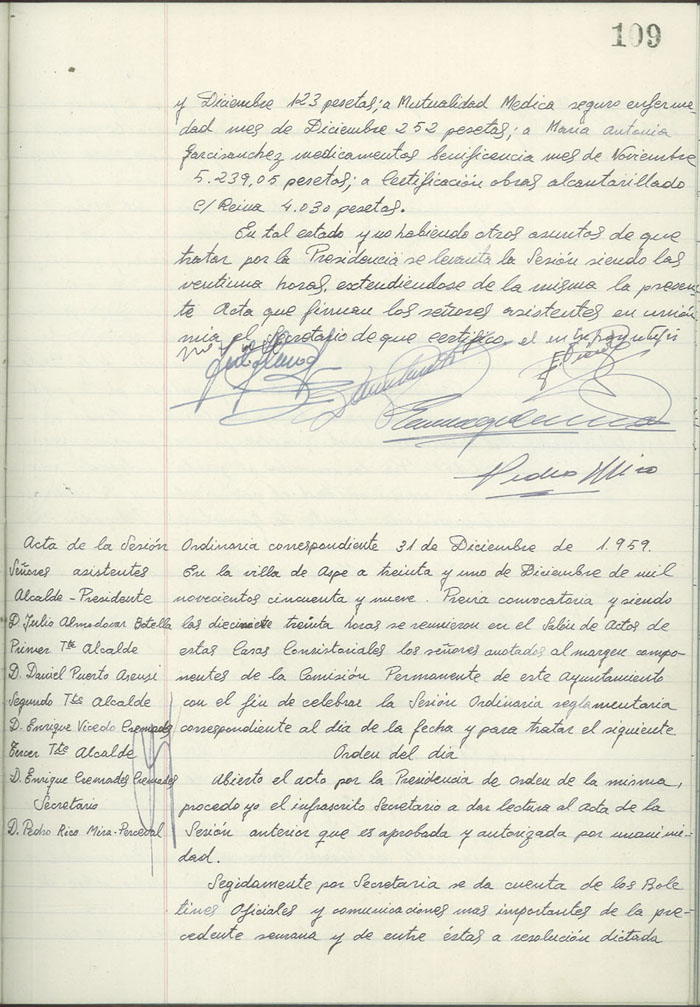 109
y Diciembre 123 pesetas; a Mutualidad Medica seguro enferme-
dad mes de Diciembre 252 pesetas; a Maria Antonia
Garcisanchez medicamentos benificencia mes de Noviembre
5.239,05 pesetas; a Certificación obras alcantarillado
C/ Reina 4.030 pesetas.
En tal estado y no habiendo otros asuntos de que
tratar por la Presidencia se levanta la Sesión siendo las
ventiuna horas, extendiendose de la misma la presen-
te Acta que firman los señores asistentes en unión
mia el Secretario de que certifico, el
Pedro Rico
Acta de la Sesión Ordinaria correspondiente 31 de Diciembre de 1.959.
Señores asistentes
Alcalde-Presidente
D. Julio Almodovar Botella
Primer Tte Alcalde
D. Daniel Puerto Asensi
Segundo Tte Alcalde
D. Enrique Vicedo Cremades
Tercer Tte Alcalde
D. Enrique Cremades Cremades
Secretario
D. Pedro Rico Mira-Perceval
En la villa de Aspe a treinta y uno de Diciembre de mil
novecientos cincuenta y nueve. Previa convocatoria y siendo
las diecinueve treinta horas se reunieron en el Salón de Actos de
estas Casas Consistoriales los señores anotados al margen compo-
nentes de la Comisión Permanente de este Ayuntamiento
con el fin de celebrar la Sesión Ordinaria reglamentaria
correspondiente al dia de la fecha y para tratar el siguiente
Orden del dia
Abierto el acto por la Presidencia de orden de la misma,
procedo yo el infrascrito Secretario a dar lectura al Acta de la
Sesión anterior que es aprobada y autorizada por unanimi-
dad.
Segidamente por Secretaria se da cuenta de los Bole
tines Oficiales y comunicaciones mas importantes de la pre-
cedente semana y de entre éstas a resolución dictada